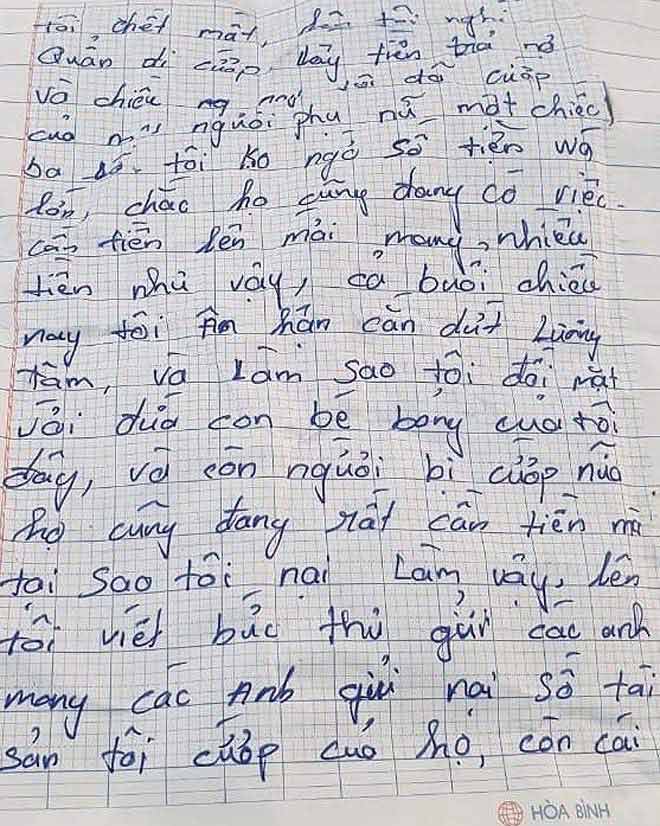 tôi, chết mất, tôi nghĩ
Quẩn đi cướp lấy tiền trả nợ
và chiều nay tôi đã cướp
của người phụ nữ một chiếc
ba tôi ko ngờ số tiền wá
lớn, chắc họ cũng đang có việc
cần tiền lên mới mang nhiều
tiền như vậy, cả buổi chiều
nay tôi ân hận cắn dứt Lương
tâm, và Làm sao tôi đối mặt
với đứa con bé bỏng của tôi
đây, và còn người bị cướp nữa
họ cũng đang rất cần tiền mà
tại sao tôi nại Làm vậy, lên
tôi viết bức thư gửi các anh
mong các Anh gửi nại số tài
sản tôi cướp của họ, còn cái
HÒA BÌNH